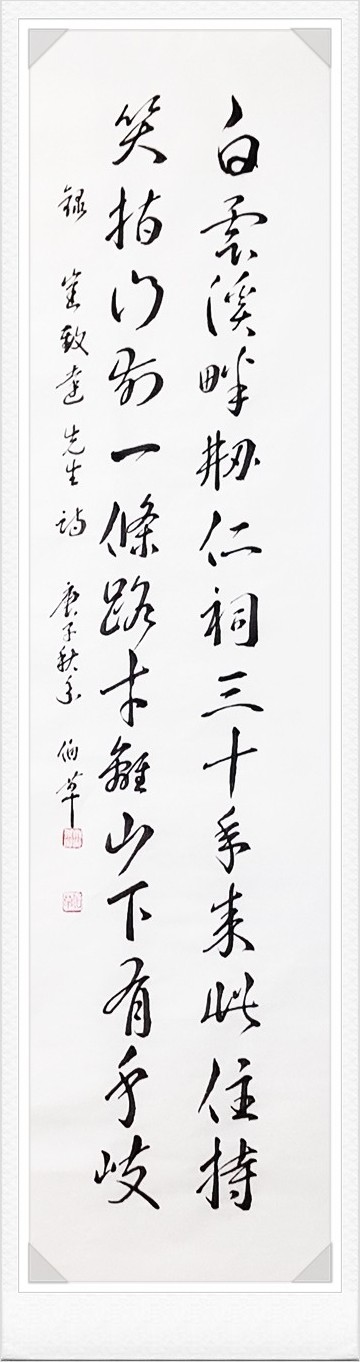 白雲溪畔刱仁祠三十年來此住持
笑指門前一條路才離山下有千岐
錄 崔致遠先生詩 庚子秋 伯草